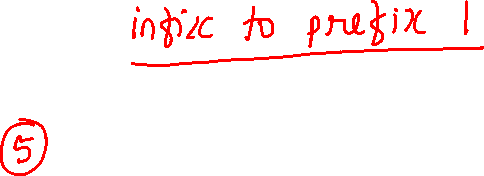 infix to prefix 1
5